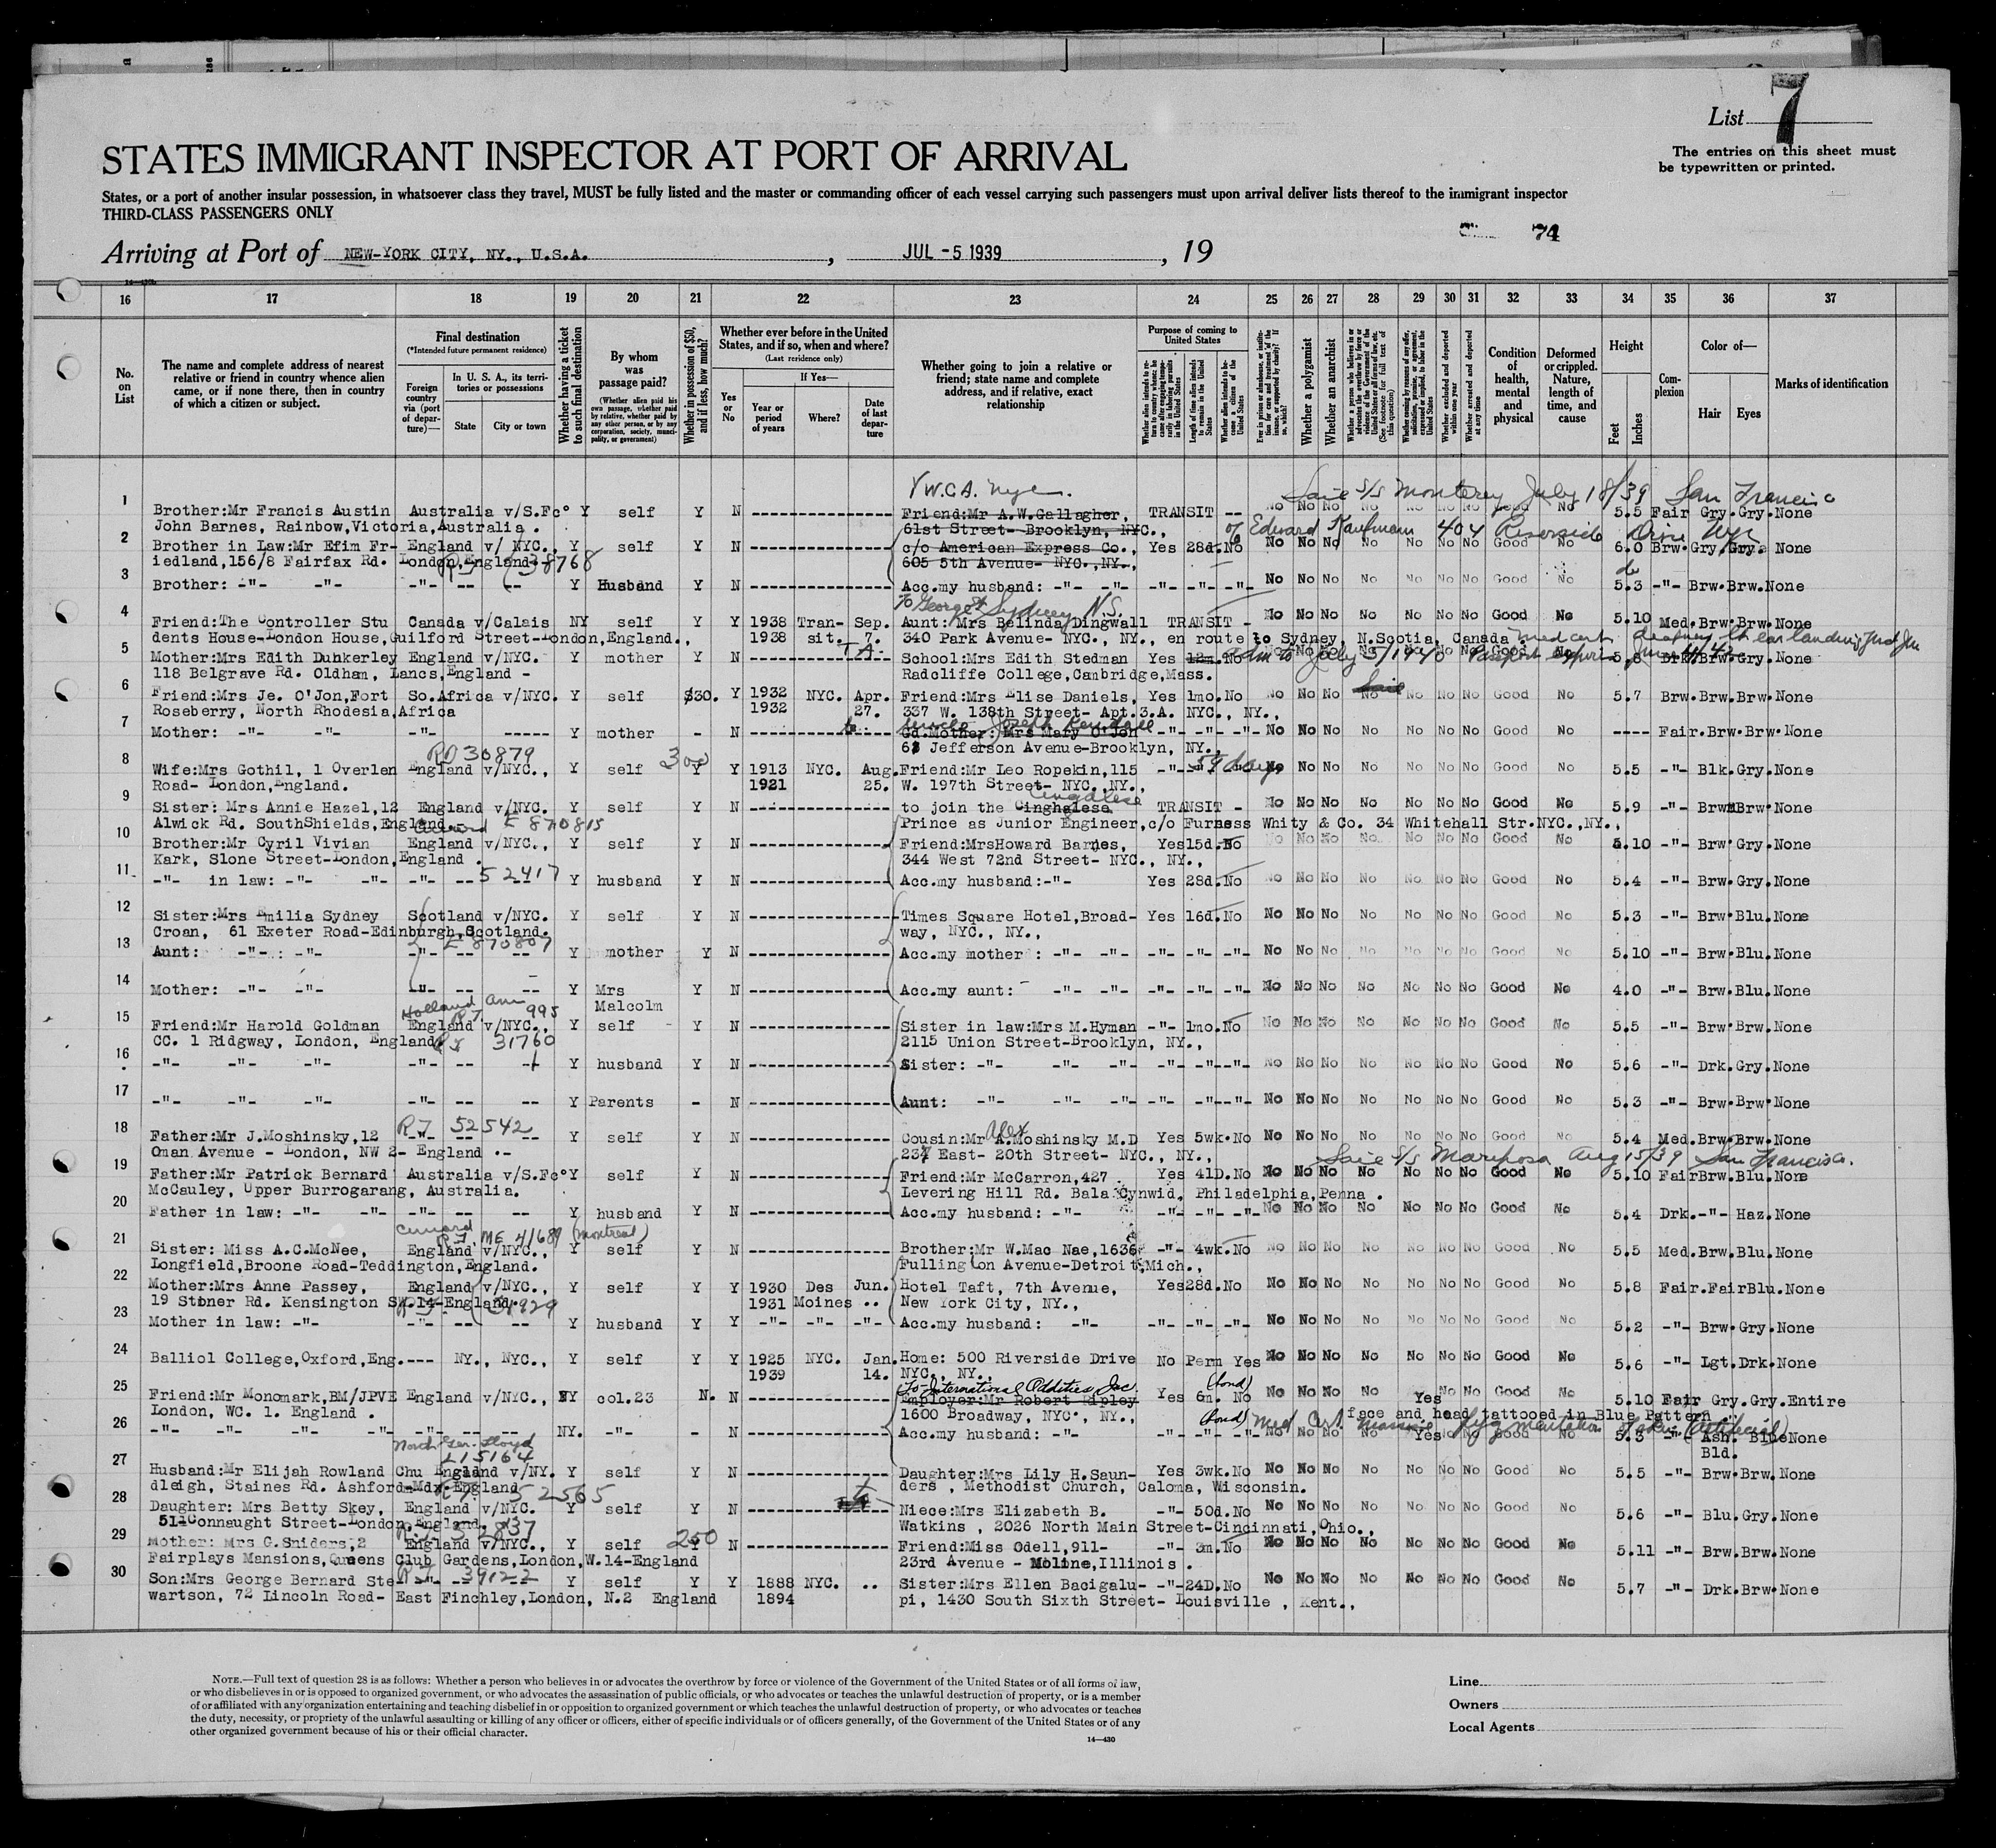 List 7
STATES IMMIGRANT INSPECTOR AT PORT OF ARRIVAL
The entries on this sheet must
be typewritten or printed.
States, or a port of another insular possession, in whatsoever class they travel, MUST be fully listed and the master or commanding officer of each vessel carrying such passengers must upon arrival deliver lists thereof to the immigrant inspector
THIRD-CLASS PASSENGERS ONLY
74
Arriving at Port of NEW-YORK CITY, NY., U.S.A. , JUL -5 1939 , 19
16 17 18 19 20 21 22 23 24 25 26 27 28 29 30 31 32 33 34 35 36 37
No. on List
The name and complete address of nearest relative or friend in country whence alien came, or if none there, then in country of which a citizen or subject.
Final destination
(*Intended future permanent residence)
Foreign country via (port of departure)—
In U. S. A., its territories or possessions
State City or town
Whether having a ticket to such final destination
By whom was passage paid?
(Whether alien paid his own passage, whether paid by relative, whether paid by any other person, or by any corporation, society, municipality, or government)
Whether in possession of $50, and if less, how much?
Whether ever before in the United States, and if so, when and where?
(Last residence only)
Yes or No
If Yes—
Year or period of years
Where?
Date of last departure
Whether going to join a relative or friend; state name and complete address, and if relative, exact relationship
Purpose of coming to United States
Length of time alien intends to remain in the United States
Whether alien intends to become a citizen of the United States
Whether a polygamist
Whether an anarchist
Condition of health, mental and physical
Deformed or crippled. Nature, length of time, and cause
Height
Feet Inches
Complexion
Color of—
Hair Eyes
Marks of identification
YWCA. nyc. Sail S/S Monterey July 18/39 San Francisco
1 Brother:Mr Francis Austin Australia v/S.Fc° Y self Y N Friend:Mr A.W.Gallagher, TRANSIT -- No No No No No No No Good No 5.5 Fair Gry.Gry.None
John Barnes, Rainbow,Victoria,Australia . 61st Street- Brooklyn, NYC.,
Edward Kaufmann 404 Riverside Drive NYC
2 Brother in Law:Mr Efim Fr- England v/ NYC., Y self Y N c/o American Express Co., Yes 28d.No No No No No No No No Good No 6.0 Brw.Gry.Gry. None
iedland,156/8 Fairfax Rd. London,England- 605 5th Avenue- NYC.,NY.,
38768
3 Brother: -"- -"- -"- -- -- Y Husband Y N Acc.my husband: -"- -"- -"- -"- -"- No No No No No No No Good No 5.3 -"- Brw.Brw.None
To George St Sydney N.S.
4 Friend:The Controller Stu Canada v/Calais NY self Y Y 1938 Tran- Sep. Aunt: Mrs Belinda Dingwall TRANSIT - No No No No No No No Good No 5.10 Med.Brw.Brw.None
dents House-London House,Guilford Street-London,England., 1938 sit. 7. 340 Park Avenue- NYC., NY., en route to Sydney, N.Scotia, Canada
adm to July 5/1940 Passport expires
5 Mother:Mrs Edith Dunkerley England v/NYC. Y mother Y N School:Mrs Edith Stedman Yes 12m.No No No No No No No No Good No 5.8 Drk Brw.Gry.None
118 Belgrave Rd. Oldham, Lancs,England - Radcliffe College,Cambridge,Mass.
6 Friend:Mrs Je. O'Jon,Fort So.Africa v/NYC. Y self $30. Y 1932 NYC. Apr. Friend:Mrs Elise Daniels, Yes 1mo.No No No No No No No No Good No 5.7 Brw.Brw.Brw.None
Roseberry, North Rhodesia,Africa 1932 27. 337 W. 138th Street- Apt.3.A. NYC., NY.,
Uncle Joseph Kendall
7 Mother: -"- -"- -"- ----- Y mother - N Gd.Mother: Mrs Mary O'Jon -"- -"- -"- No No No No No No No Good No ---- Fair.Brw.Brw.None
68 Jefferson Avenue-Brooklyn, NY.,
RD 30879 300 59 days
8 Wife:Mrs Gothil, 1 Overlen England v/NYC., Y self Y Y 1913 NYC. Aug. Friend:Mr Leo Ropekin,115 -"- No No No No No No No Good No 5.5 -"- Blk.Gry.None
Road- London,England. 1921 25. W. 197th Street- NYC.,NY.,
Cingalese
9 Sister: Mrs Annie Hazel,12 England v/NYC. Y self Y N to join the Cinghalese TRANSIT - No No No No No No No Good No 5.9 -"- Brw.Brw.None
Alwick Rd. SouthShields,England Prince as Junior Engineer,c/o Furness Whity & Co. 34 Whitehall Str.NYC.,NY.,
Cunard E 870815
10 Brother:Mr Cyril Vivian England v/NYC., Y self Y N Friend:MrsHoward Barnes, Yes15d.No No No No No No No No Good No 5.10 -"- Brw.Gry.None
Kark, Slone Street-London,England . 344 West 72nd Street- NYC., NY.,
52417
11 -"- in law: -"- -"- -"- -- Y husband Y N Acc.my husband:-"- Yes 28d.No No No No No No No No Good No 5.4 -"- Brw.Gry.None
12 Sister:Mrs Emilia Sydney Scotland v/NYC. Y self Y N Times Square Hotel,Broad- Yes 16d.No No No No No No No No Good No 5.3 -"- Brw.Blu.None
Croan, 61 Exeter Road-Edinburgh,Scotland. way, NYC., NY.,
E 870807
13 Aunt: -"- : -"- -"- -- -- Y mother Y N Acc.my mother : -"- -"- -"- -"- -"- No No No No No No No Good No 5.10 -"- Brw.Blu.None
14 Mother: -"- -"- -"- -- Y Mrs Y N Acc.my aunt: -"- -"- -"- -"- -"- No No No No No No No Good No 4.0 -"- Brw.Blu.None
Malcolm
Holland Am RT 995
15 Friend:Mr Harold Goldman England v/NYC., Y self Y N Sister in law:Mrs M.Hyman -"- 1mo.No No No No No No No No Good No 5.5 -"- Brw.Brw.None
CC. 1 Ridgway, London, England. 2115 Union Street-Brooklyn, NY.,
RT 31760
16 -"- -"- -"- -"- -- -- Y husband Y N Sister: -"- -"- -"- -"- -"--"- No No No No No No No Good No 5.6 -"- Drk.Gry.None
17 -"- -"- -"- -"- -- -- Y Parents - N Aunt: -"- -"- -"- -"- -"--"- No No No No No No No Good No 5.3 -"- Brw.Brw.None
RT 52542 Alex
18 Father:Mr J.Moshinsky,12 -"- -- -- Y self Y N Cousin:Mr A.Moshinsky M.D Yes 5wk.No No No No No No No No Good No 5.4 Med.Brw.Brw.None
Oman Avenue - London, NW 2- England .- 237 East- 20th Street- NYC., NY.,
Sail S/S Mariposa Aug 15/39 San Francisco.
19 Father:Mr Patrick Bernard Australia v/S.Fc°Y self Y N Friend:Mr McCarron,427 Yes 41D.No No No No No No No No Good No 5.10 FairBrw.Blu.None
McCauley, Upper Burrogarang, Australia. Levering Hill Rd. Bala Cynwid, Philadelphia,Penna .
20 Father in law: -"- -"- -"- -- -- Y husband Y N Acc.my husband: -"- -"- -"- -"- No No No No No No No Good No 5.4 Drk.-"- Haz.None
Cunard RT. ME 41689 (Montreal)
21 Sister: Miss A.C.McNee, England v/NYC., Y self Y N Brother:Mr W.Mac Nae,1636 -"- 4wk.No No No No No No No No Good No 5.5 Med.Brw.Blu.None
Longfield,Broone Road-Teddington,England. Fullington Avenue-Detroit,Mich.,
22 Mother:Mrs Anne Passey, England v/NYC., Y self Y Y 1930 Des Jun. Hotel Taft, 7th Avenue, Yes28d.No No No No No No No No Good No 5.8 Fair.FairBlu.None
19 Stoner Rd. Kensington SW.14-England. 1931 Moines .. New York City, NY.,
31929
23 Mother in law: -"- -"- -- -- Y husband Y Y -"- -"- -"- Acc.my husband: -"- -"- -"- -"- No No No No No No No Good No 5.2 -"- Brw.Gry.None
24 Balliol College,Oxford,Eng.--- NY., NYC., Y self Y Y 1925 NYC. Jan. Home: 500 Riverside Drive No Perm Yes No No No No No No No Good No 5.6 -"- Lgt.Drk.None
1939 14. NYC., NY.,
To International Oddities, Inc. (bond)
25 Friend:Mr Monomark,BM/JPVE England v/NYC., NY col.23 N. N Employer:Mr Robert Ripley Yes 6m. No No No No No Yes No No Good No 5.10 Fair Gry.Gry.Entire
London, WC. 1. England . 1600 Broadway, NYC., NY., face and head tattooed in Blue Pattern
(bond) Med Cert
26 -"- -"- -"- -"- -"- -- -- NY. -"- - N Acc.my husband: -"- -"- -"- -"- No No No No Yes No No Good No 5.3 -"- Ash. Blue None
Bld.
North Ger. Lloyd
215164
27 Husband:Mr Elijah Rowland Chu England v/NY. Y self Y N Daughter:Mrs Lily H.Saun- Yes 3wk.No No No No No No No No Good No 5.5 -"- Brw.Brw.None
dleigh, Staines Rd. Ashford-Mdx-England ders , Methodist Church, Caloma, Wisconsin.
52565
28 Daughter: Mrs Betty Skey, England v/NYC. Y self Y N Niece:Mrs Elizabeth B. -"- 50d.No No No No No No No No Good No 5.6 -"- Blu.Gry.None
511Connaught Street-London,England. Watkins , 2026 North Main Street-Cincinnati,Ohio.,
RT 52837 250
29 Mother: Mrs G.Sniders,2 England v/NYC., Y self Y N Friend:Miss Odell,911- -"- 3m.No No No No No No No No Good No 5.11 -"- Brw.Brw.None
Fairplays Mansions,Queens Club Gardens,London,W.14-England 23rd Avenue - Moline,Illinois .
RT 39122
30 Son:Mrs George Bernard Ste -"- -- -- Y self Y Y 1888 NYC. .. Sister:Mrs Ellen Bacigalu- -"-24D.No No No No No No No No Good No 5.7 -"- Drk.Brw.None
wartson, 72 Lincoln Road- East Finchley,London, N.2 England 1894 pi, 1430 South Sixth Street- Louisville , Kent.,
NOTE.—Full text of question 28 is as follows: Whether a person who believes in or advocates the overthrow by force or violence of the Government of the United States or of all forms of law,
or who disbelieves in or is opposed to organized government, or who advocates the assassination of public officials, or who advocates or teaches the unlawful destruction of property, or is a member
of or affiliated with any organization entertaining and teaching disbelief in or opposition to organized government or which teaches the unlawful destruction of property, or who advocates or teaches
the duty, necessity, or propriety of the unlawful assaulting or killing of any officer or officers, either of specific individuals or of officers generally, of the Government of the United States or of any
other organized government because of his or their official character.
14—430
Line
Owners
Local Agents